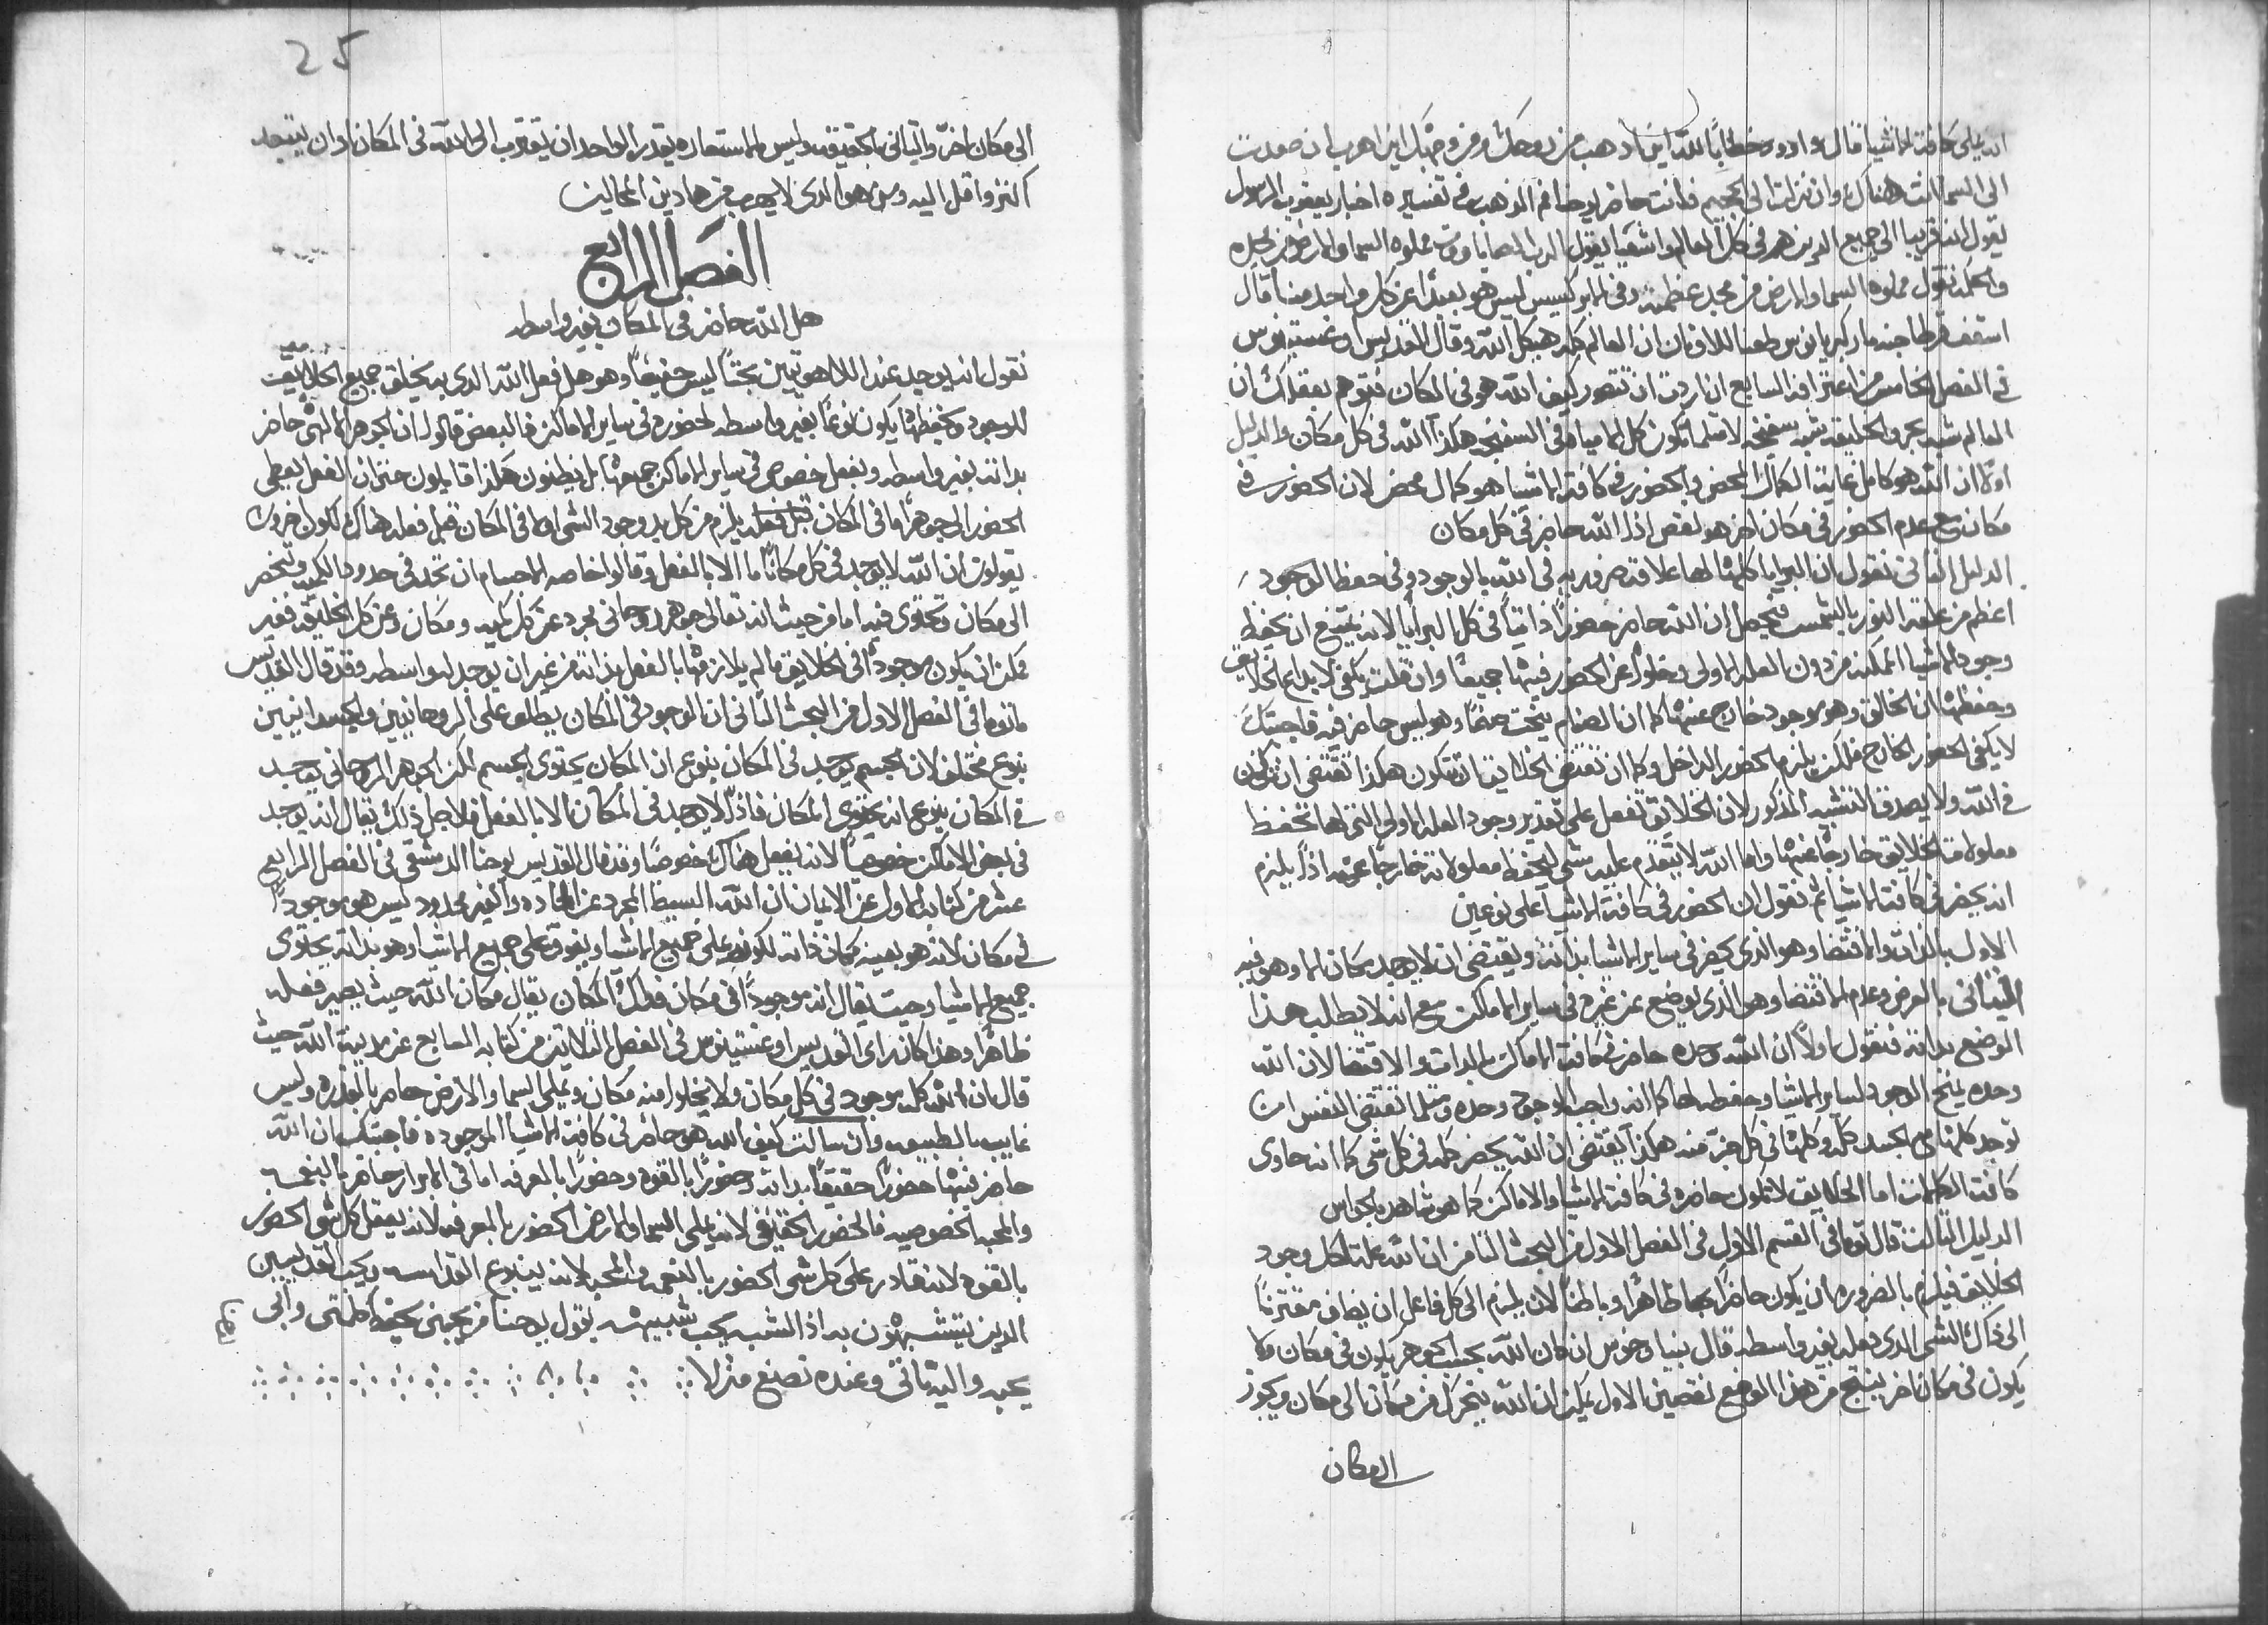 انه يملى كافة الاشيا قال داوود مخطابًا لله اين اذهب من روحك ومن وجهك اين اهرب ان صعدت
الى السما انت هناك وان نزلت الى الجحيم فانت حاضر يوحنا فم الذهب في تفسيره اخبار يعقوب الرسول
يقول انه قريبا الى جميع الذين هم في كل العالم واشعيا يقول الرب الصاباووت مملوه السما والارض من مجده
والحكمه تقول مملوه السما والارض من مجد عظمته وفي الابركسيس ليس هو بعيدًا عن كل واحد منا قال
اسقف قرطاجنه مار كبريانوس ان العالم كله هيكل الله وقال القديس اوغستينوس
في الفصل الخامس من اعترافه السابع ان اردت ان تتصور كيف الله هو في المكان فتوهم بعقلك ان
العالم شبه بحر والخليقه شبه سفنجه مثلما تكون كل المياه في السفنجه هكذا الله في كل مكان والدليل
اولًا ان الله هو كامل بغاية الكمال المحض والحضور في كافة الاشيا هو كمال محض لان الحضور في
مكان مع عدم الحضور في مكان اخر هو نقص اذا الله حاضر في كل مكان
الدليل الثاني نقول ان البرايا كلها لها علاقة ضروريه في الله بالوجود وفي حفظ الوجود
اعظم من علقة النور بالشمس فيحصل ان الله حاضر حضورًا ذاتيًا في كل البرايا لانه يمتنع ان يحفظ
وجود الاشيا الممكنه من دون العله الاولى وخلوًا عن الحضور فيها جميعًا وان قلت يكفي لابداع الخلايق
وحفظها ان الخالق وهو موجود خارج عنها كما ان الصنام ينحت صنمًا وهو ليس حاضر فيه فاجبتك
لا يكفي الحضور الخارج فلكن يلزم الحضور الداخل وكما ان تقتضي الخلايق ان تتكون هكذا تقتضي ان تكون
في الله ولا يصدق التشبيه المذكور لان الخلايق تفعل على تقدير وجود العله الاولى التي لها تحفظ
معلولات الخلايق خارجًا عنها واما الله لا يتقدم عليه شي ليحفظ معلولاته خارجًا عنه اذًا يلزم
انه يحضر في كافة الاشيا ثم نقول ان الحضور في كافة الاشيا على نوعين
الاول بالذات والاقتضا وهو الذي يحضر في ساير الاشيا بذاته ويقتضي ان لا يوجد مكان الا وهو فيه
الثاني بالعرض وعدم الاقتضا وهو الذي يوضع عن غيره في ساير الاماكن مع انه لا يطلب هذا
الوضع بذاته فنقول اولًا ان الله وحده حاضر في كافة الاماكن بالذات والاقتضا لان الله
وحده يمنح الوجود لساير الاشيا وحفظها كما انه واجب الوجود وحده ومثلما تقتضي النفس ان
توجد كلها مع الجسد كله وكلها في كل جزء منه هكذا يقتضي ان الله يحضر كله في كل شي كما انه حاوي
كافة الكمالات اما الخلايق لا تكون حاضره في كافة الاشيا والاماكن كما هو شاهد بالحواس
الدليل الثالث قال توما في القسم الاول في الفصل الاول من البحث الثامن ان الله علة لكل وجود
الخلايق فيلزم بالضروره ان يكون حاضرًا بها ظاهرًا وباطنًا لان يلزم الى كل فاعل ان يضاف مقترنًا
الى ذاك الشي الذي يفعله بغير واسطه قال ان كان الله بحسب الجوهر يكون في مكان ولا
يكون في مكان اخر ينتج من هذا الوضع نقصين الاول يمكن ان الله يتحرك من مكان الى مكان ويجوز
الى مكان
25
الى مكان اخر والثاني بالحقيقه وليس بالاستعاره يقدر الواحد ان يقترب الى الله في المكان او ان يبتعد
اكثر واقل اليه ومن هو الذي لا يهرب من هادين المحالين
الفصل الرابع
هل الله حاضر في المكان بغير واسطه
نقول انه يوجد عند اللاهوتيين بحثًا ليس حقيرًا وهو هل فعل الله الذي به يخلق جميع الخلايق
للوجود ويحفظها يكون نوعًا بغير واسطه لحضوره في ساير الاماكن فالبعض قالوا ان الجوهر الالهي حاضر
بذاته بغير واسطه وبفعل خصوص في ساير الاماكن جميعها بل يظنون هكذا قايلون حتى ان الفعل يعطي
الحضور الى جوهر ما في المكان قبل فعله يلزم من كل بد وجود الشي اولا في المكان قبل فعله هناك لكون اخرون
يقولون ان الله لا يوجد في كل مكان ما الا بالفعل وقالوا خاصه الاجسام ان تحد في حدود الكميه وتنحصر
الى مكان وتحتوى فيه اما من حيث انه تعالى جوهر روحاني مجرد عن كل كميه ومكان وعن كل الخليقه فغير
ممكن ان يكون موجودًا في الخلايق ما لم يلازمها بالفعل بذاته من غير ان يوجد له واسطه وقد قال القديس
ماتوما في الفصل الاول من البحث الثاني ان الوجود في المكان يطلق على الروحانيين والجسدانيين
بنوع مختلف لان الجسم يوجد في المكان بنوع ان المكان يحتوي الجسم لكن الجوهر الروحاني يوجد
في المكان بنوع انه يحتوي المكان فاذًا لا يوجد في المكان الا بالفعل فلاجل ذلك يقال انه يوجد
في بعض الاماكن خصوصًا لانه يفعل هناك خصوصًا وقد قال القديس يوحنا الدمشقي في الفصل الرابع
عشر من كتابه الاول عن الايمان ان الله البسيط المجرد عن الماده والغير محدود ليس هو موجودًا
في مكان لانه هو بعينه مكان ذاته لكونه يملي جميع الاشيا ويفوق على جميع الاشيا وهو بذاته يحتوي
جميع الاشيا وحيث يقال انه موجودًا في مكان فذلك المكان يقال مكان الله حيث يصير فعله
ظاهرًا وهذا كان راي القديس اوغستينوس في الفصل الثلاثين من كتابه السابع عن مدينة الله حيث
قال بان الله كله موجود في كل مكان ولا يخلوا منه مكان ويملي السما والارض حاضر بالقدره وليس
غايب بالطبيعه وان سالت كيف الله هو حاضر في كافة الاشيا الموجوده فاجبتك ان الله
حاضر فيها حضورًا حقيقيًا بذاته وحضورًا بالقوه وحضورًا بالمعرفه اما في الابرار حاضر بالنعمه
والمحبه الخصوصيه فالحضور الحقيقي لانه يملي السما والارض الحضور بالمعرفه لانه يعقل كل شي الحضور
بالقوه لانه قادر على كل شي الحضور بالنعمه والمحبه لانه ينبوع القداسه ويحب القديسين
الذين يتشبهون به اذ الشبه يحب شبيهه يقول يوحنا من يحبني يحفظ كلمتي وابي
يحبه واليه ناتي وعنده نصنع منزلا